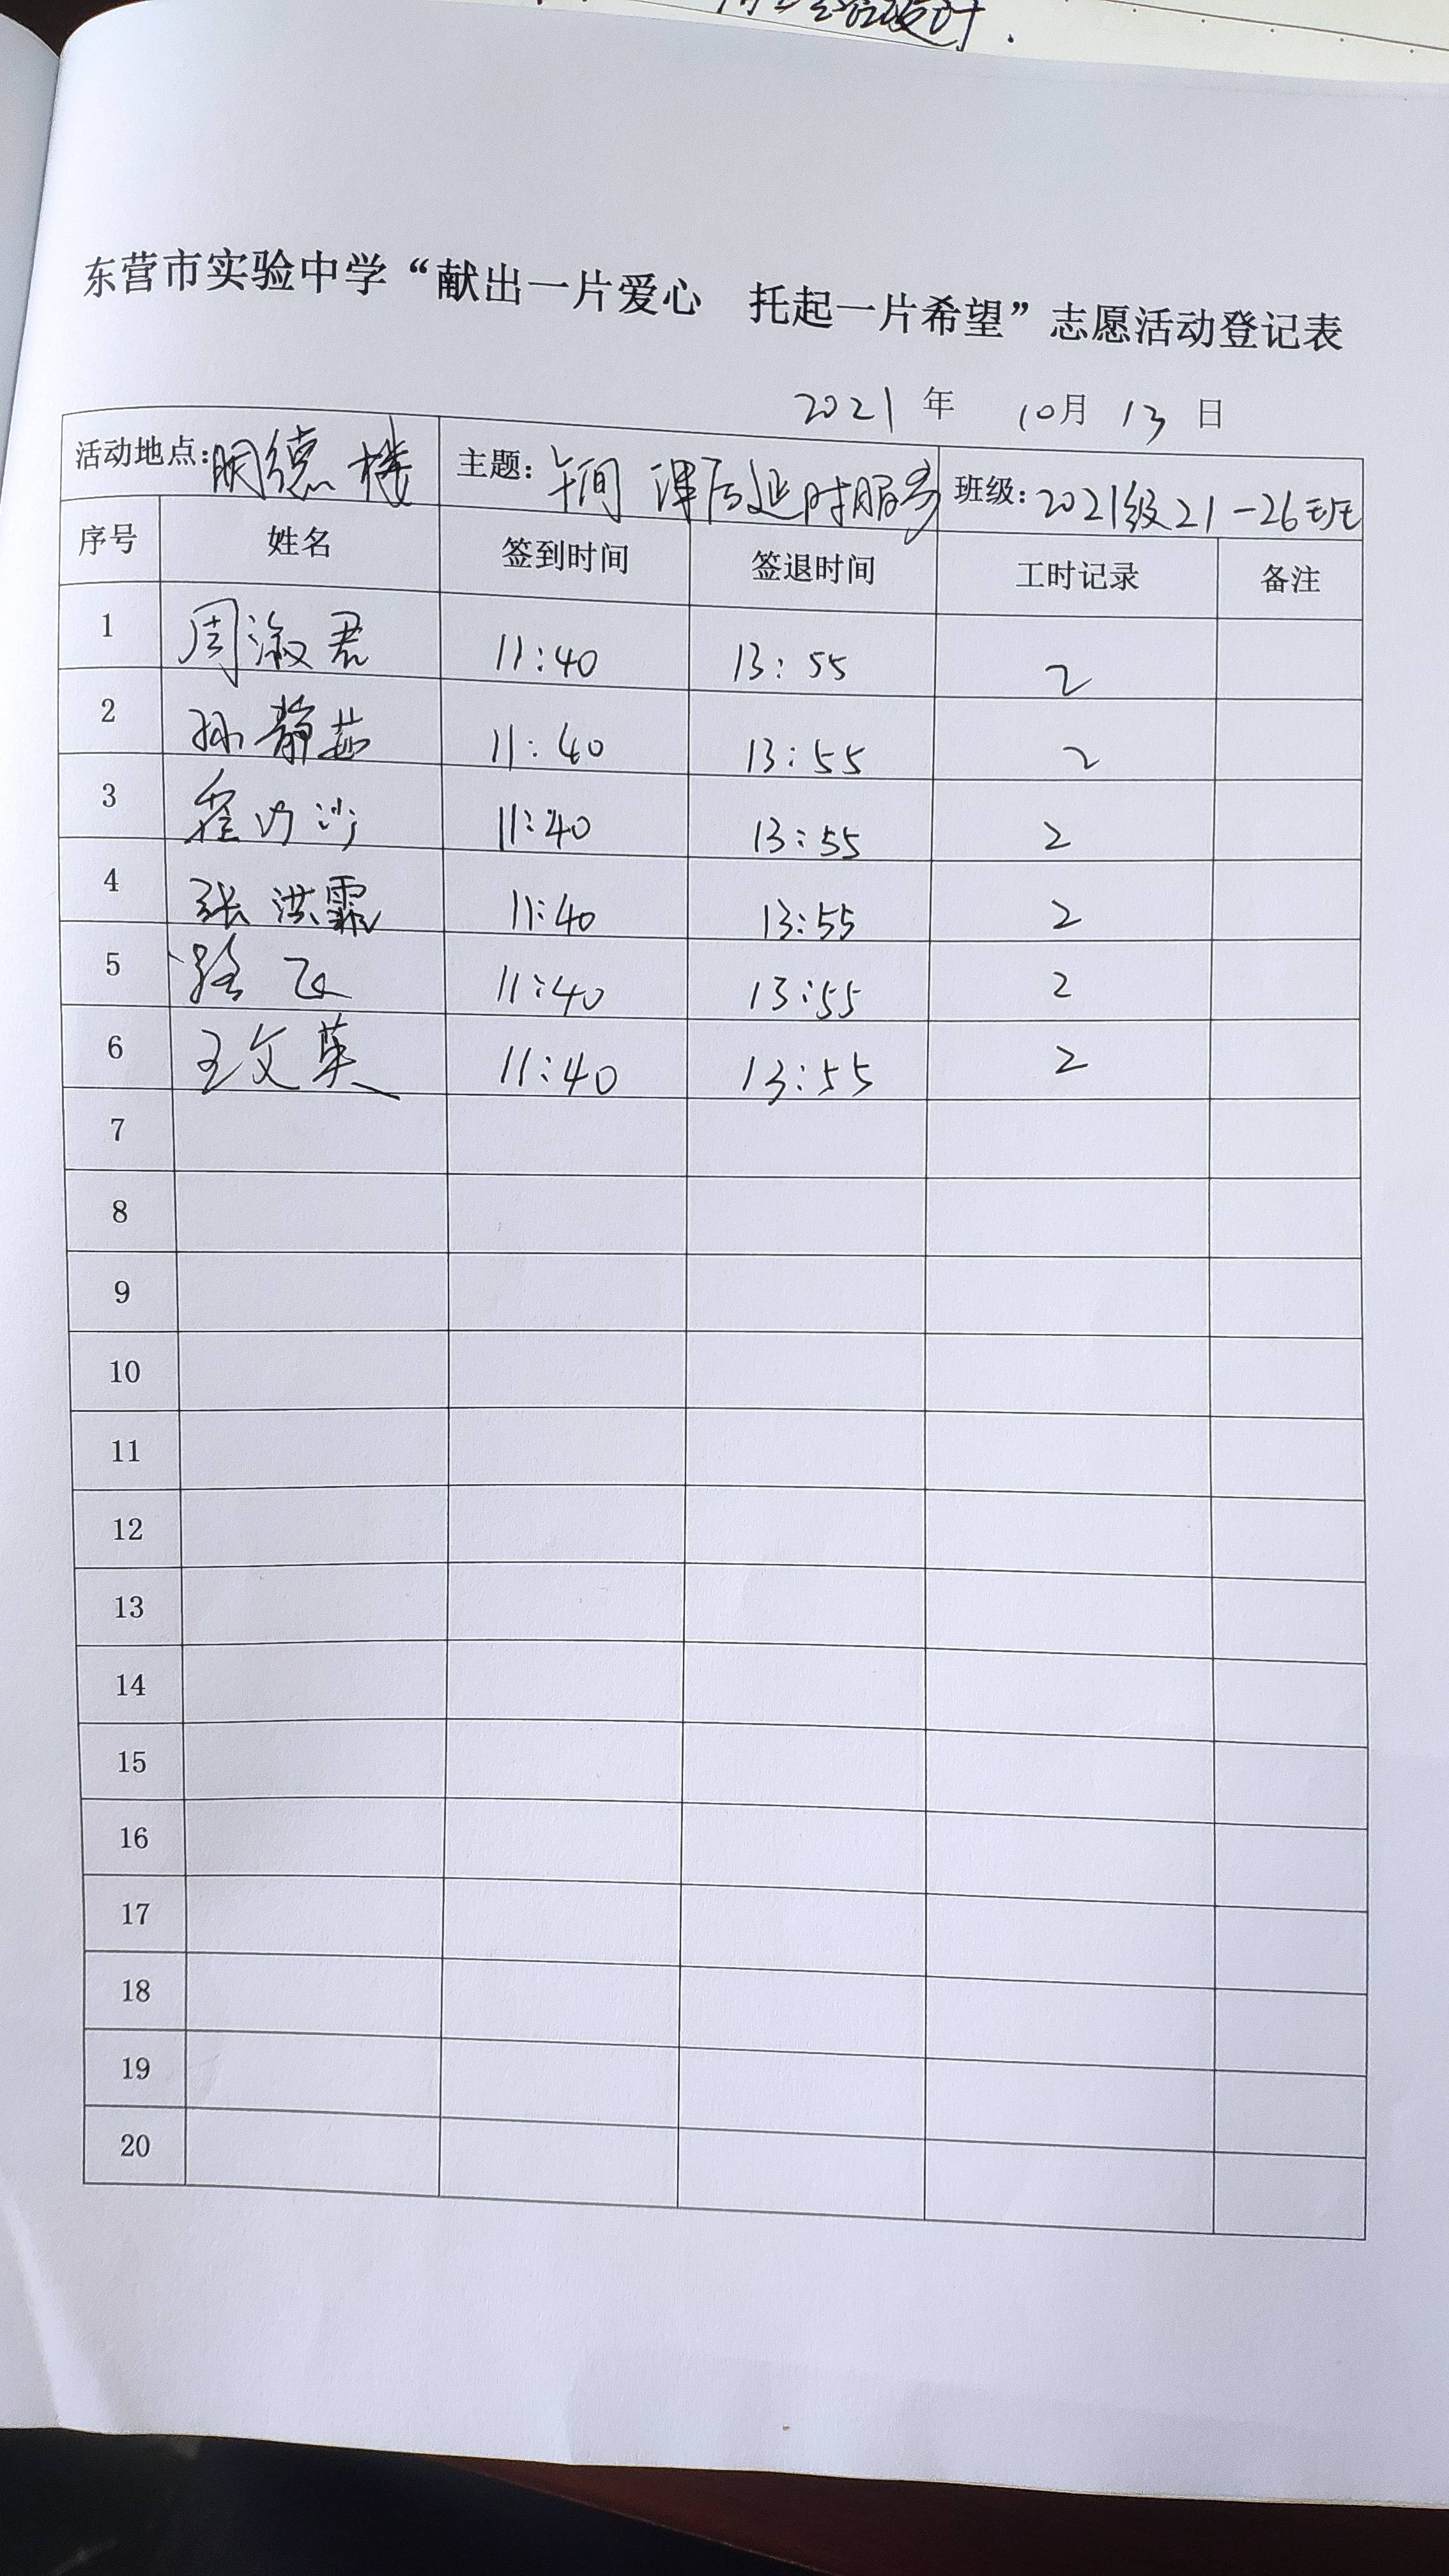 东营市实验中学“献出一片爱心 托起一片希望”志愿活动登记表
2021 年 10月 13 日
活动地点：明德楼 主题：午间 课后延时服务 班级：2021级21-26班
序号 姓名 签到时间 签退时间 工时记录 备注
1 周淑君 11:40 13:55 2
2 孙静茹 11:40 13:55 2
3 11:40 13:55 2
4 张洪霏 11:40 13:55 2
5 路飞 11:40 13:55 2
6 王文英 11:40 13:55 2
7
8
9
10
11
12
13
14
15
16
17
18
19
20